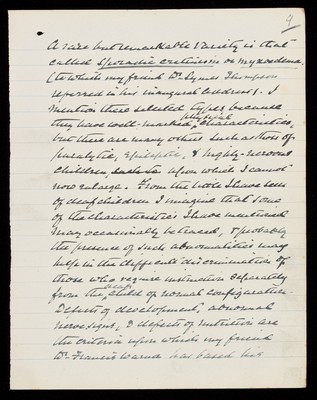 9
A rare but remarkable variety is that
called Sporadic cretinism or myxoedema
(to which my friend Dr. Symes Thompson
referred in his inaugural address). I
mention these selected types because
physical
they have well-marked characteristics,
but there are many others such as those of
paralytic, epileptic, & highly-nervous
children, upon which I cannot
now enlarge. From the little I have seen
of deaf children I imagine that some
of the characteristics I have mentioned
may occasionally be traced, & probably
the presence of such abnormalities may
help in the difficult discrimination of
those who require instruction separately
deaf
from the child of normal configuration.
Defects of development, abnormal
nerve signs, & defects of nutrition are
the criteria upon which my friend
Dr. Francis Warner has based his